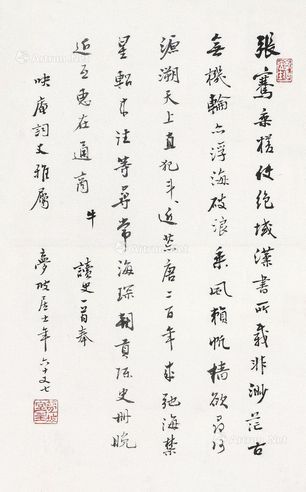 張騫乘槎使絕域漢書所載非渺茫古
無機輪亦浮海破浪乘風賴帆檣欲尋河
源溯天上直犯斗牛近黃唐二百年來弛海禁
星軺來往等尋常海琛朝貢陋史冊晚
近互惠在通商
牛
讀史一首奉
映庵詞丈雅屬
夢坡居士年六十又七